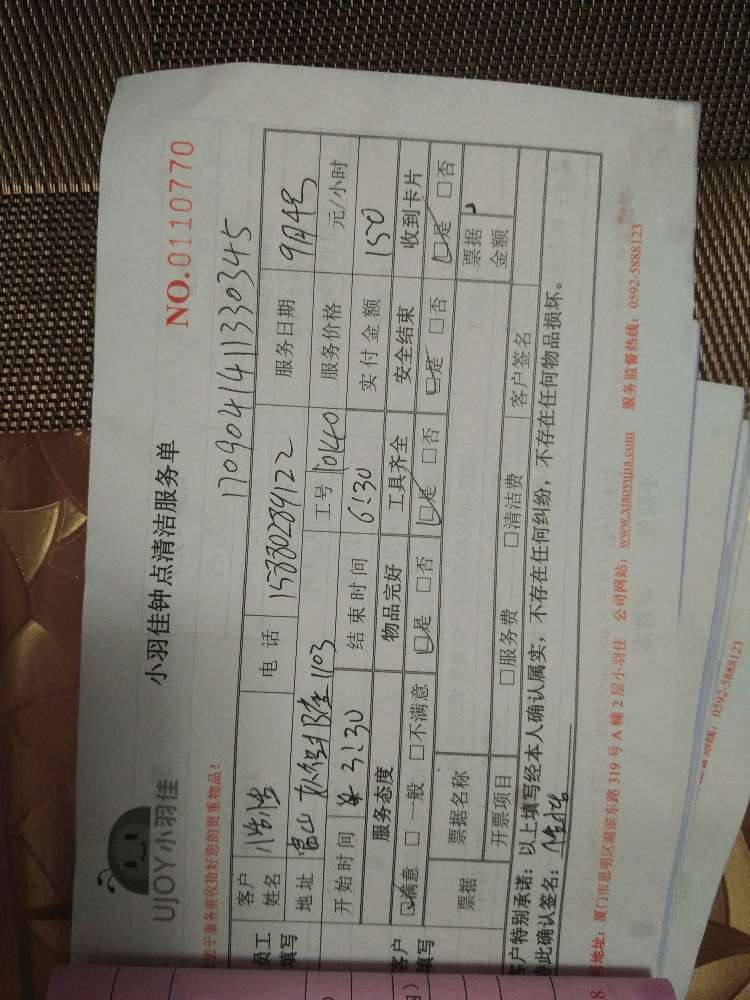 UJOY小羽佳
小羽佳钟点清洁服务单
NO.0110770
于服务前收拾好您的贵重物品!
1709041411330345
员工填写
客户姓名
电话
服务日期 9月4号
地址 富山 1103
工号 10140
服务价格 元/小时
开始时间 3:30
结束时间 6:30
实付金额 150
客户填写
服务态度 物品完好 工具齐全 安全结束 收到卡片
☑满意 □一般 □不满意 ☑是 □否 ☑是 □否 ☑是 □否 ☑是 □否
票据 票据名称 票据金额
开票项目 □服务费 □清洁费 客户签名
客户特别承诺:以上填写经本人确认属实,不存在任何纠纷,不存在任何物品损坏。
特此确认签名:
地址:厦门市思明区湖滨东路 319 号 A 幢 2 层小羽佳 公司网站:www.xiaoyujia.com 服务监督热线:0592-5888123
热线:0592-5888123